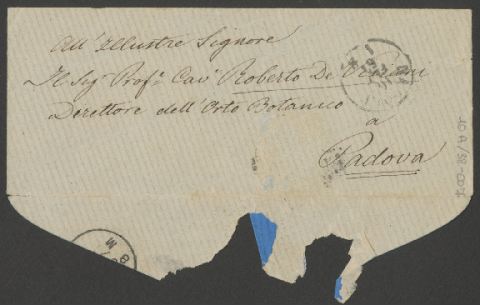 All'Illustre Signore
Il Sigr Profr Cavr Roberto De Visiani
Direttore dell'Orto Botanico
a
Padova
B M